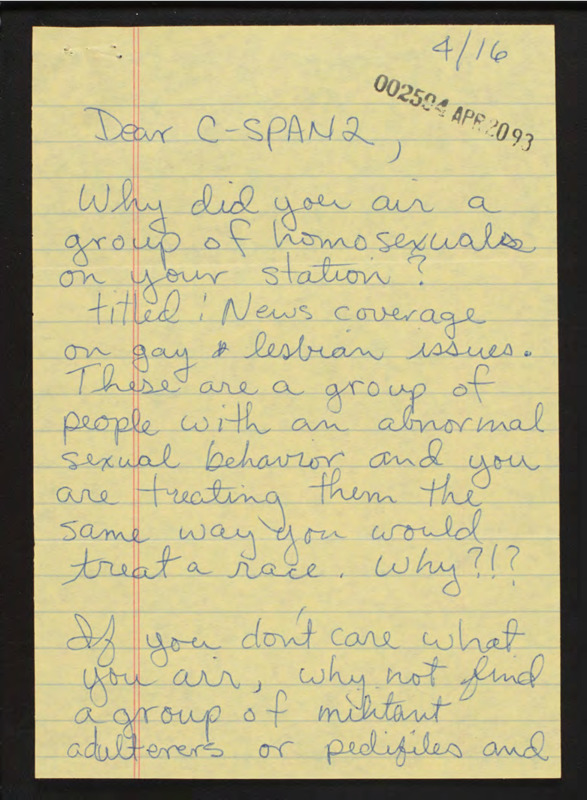 4/16
002594 APR 20 93
Dear C-SPAN2,
Why did you air a
group of homosexuals
on your station?
titled: News coverage
on gay & lesbian issues.
These are a group of
people with an abnormal
sexual behavior and you
are treating them the
same way you would
treat a race. Why?!?
If you don't care what
you air, why not find
a group of militant
adulterers or pedifiles and